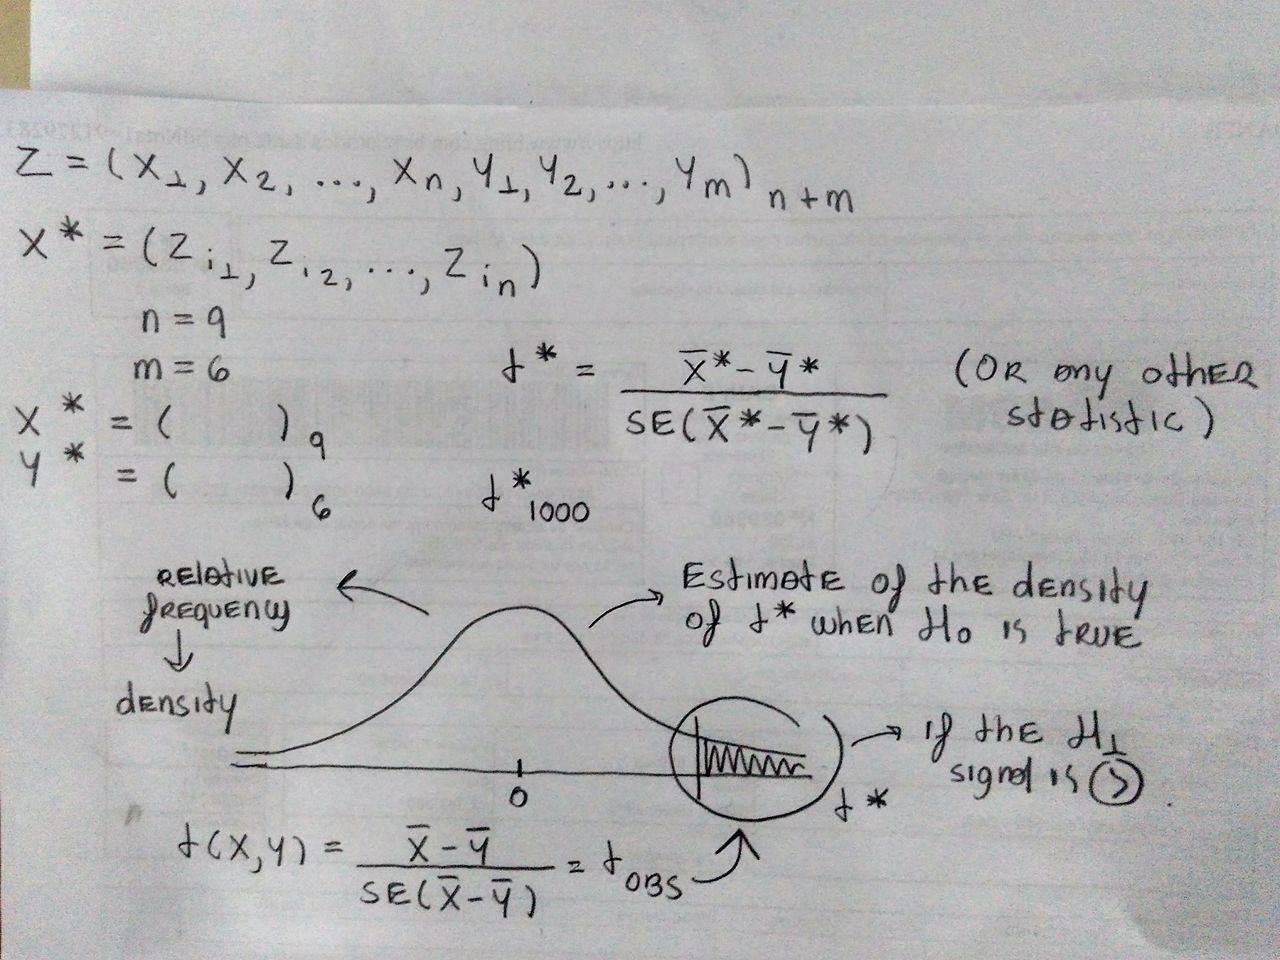 Z = (X1, X2, ..., Xn, Y1, Y2, ..., Ym) n+m
X* = (Zi1, Zi2, ..., Zin)
n = 9
m = 6
t* = X̄* - Ȳ* / SE(X̄* - Ȳ*) (OR any other statistic)
X* = ( )9
Y* = ( )6
t*1000
Relative frequency
↓
density
Estimate of the density
of t* when H0 is true
0
t*
if the H1
signal is >
t(X,Y) = X̄ - Ȳ / SE(X̄ - Ȳ) = tOBS